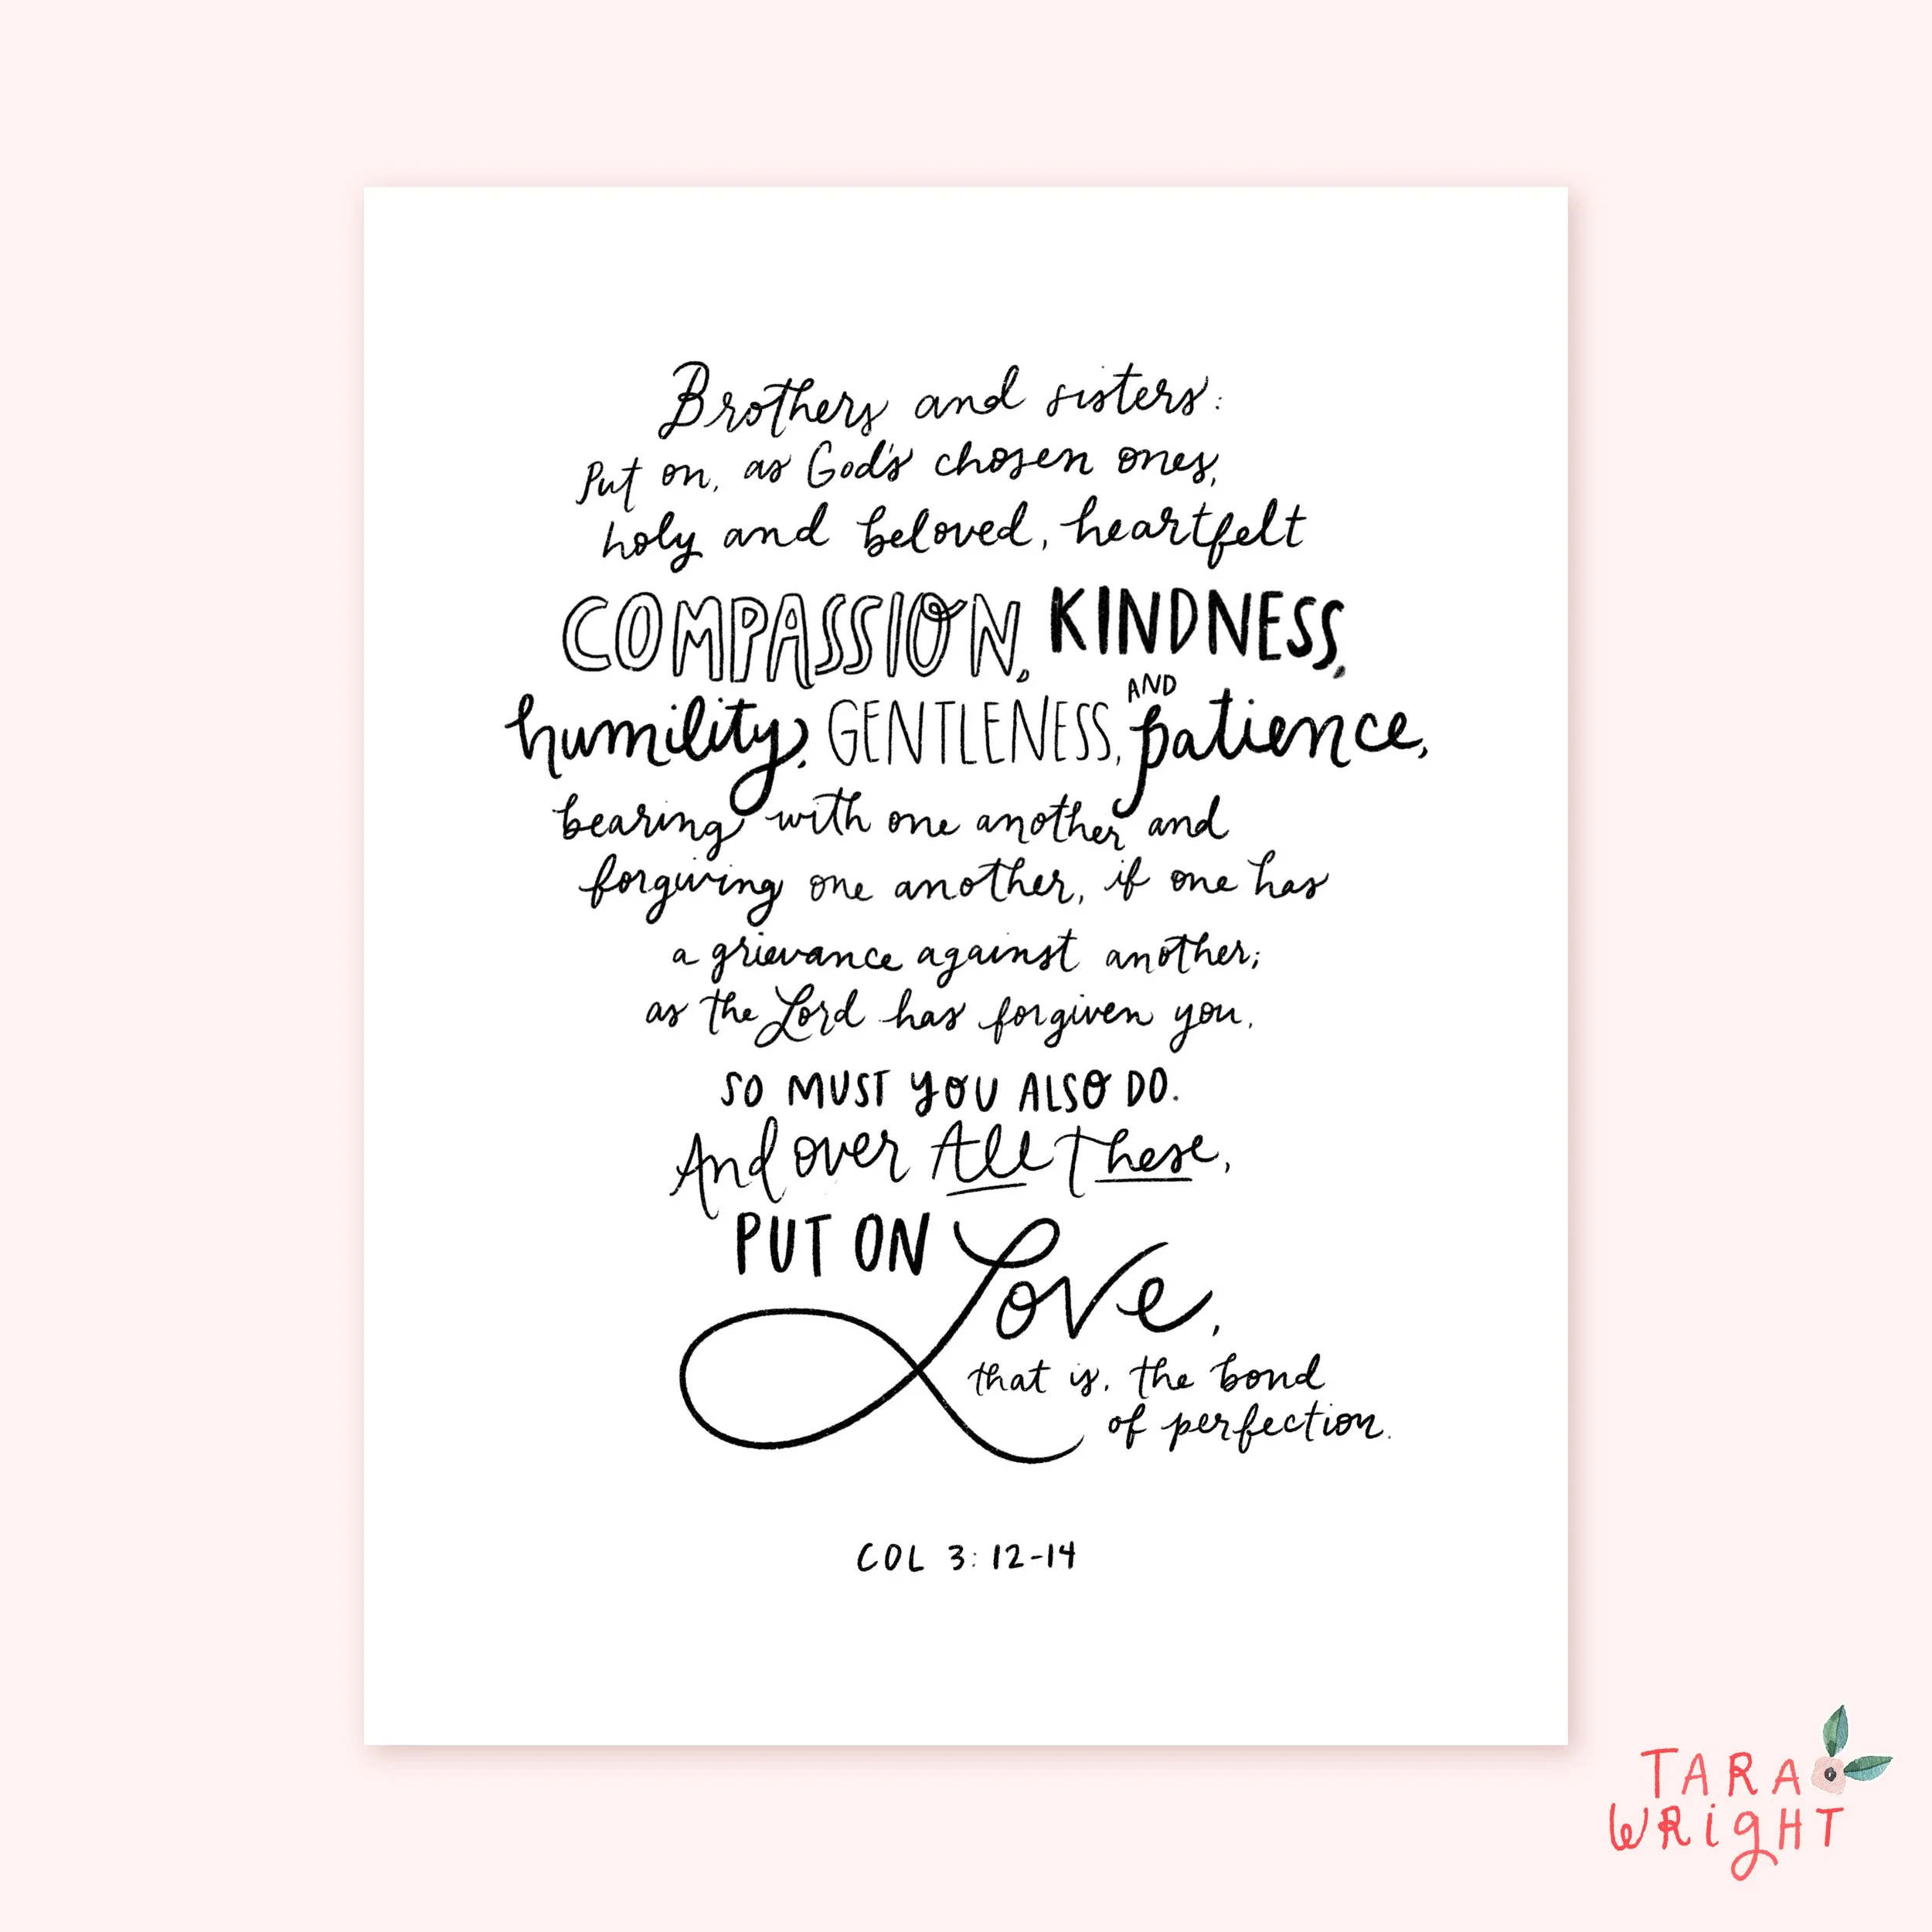 Brothers and sisters:
Put on, as God's chosen ones,
holy and beloved, heartfelt
COMPASSION, KINDNESS,
humility, GENTLENESS, AND patience,
bearing with one another and
forgiving one another, if one has
a grievance against another;
as the Lord has forgiven you,
SO MUST YOU ALSO DO.
And over All These,
PUT ON Love,
that is, the bond
of perfection.
COL 3:12-14
TARA
WRIGHT